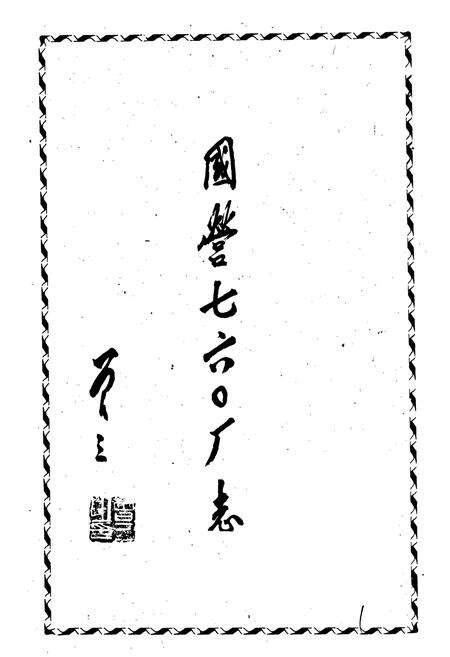 國營七六〇厂志